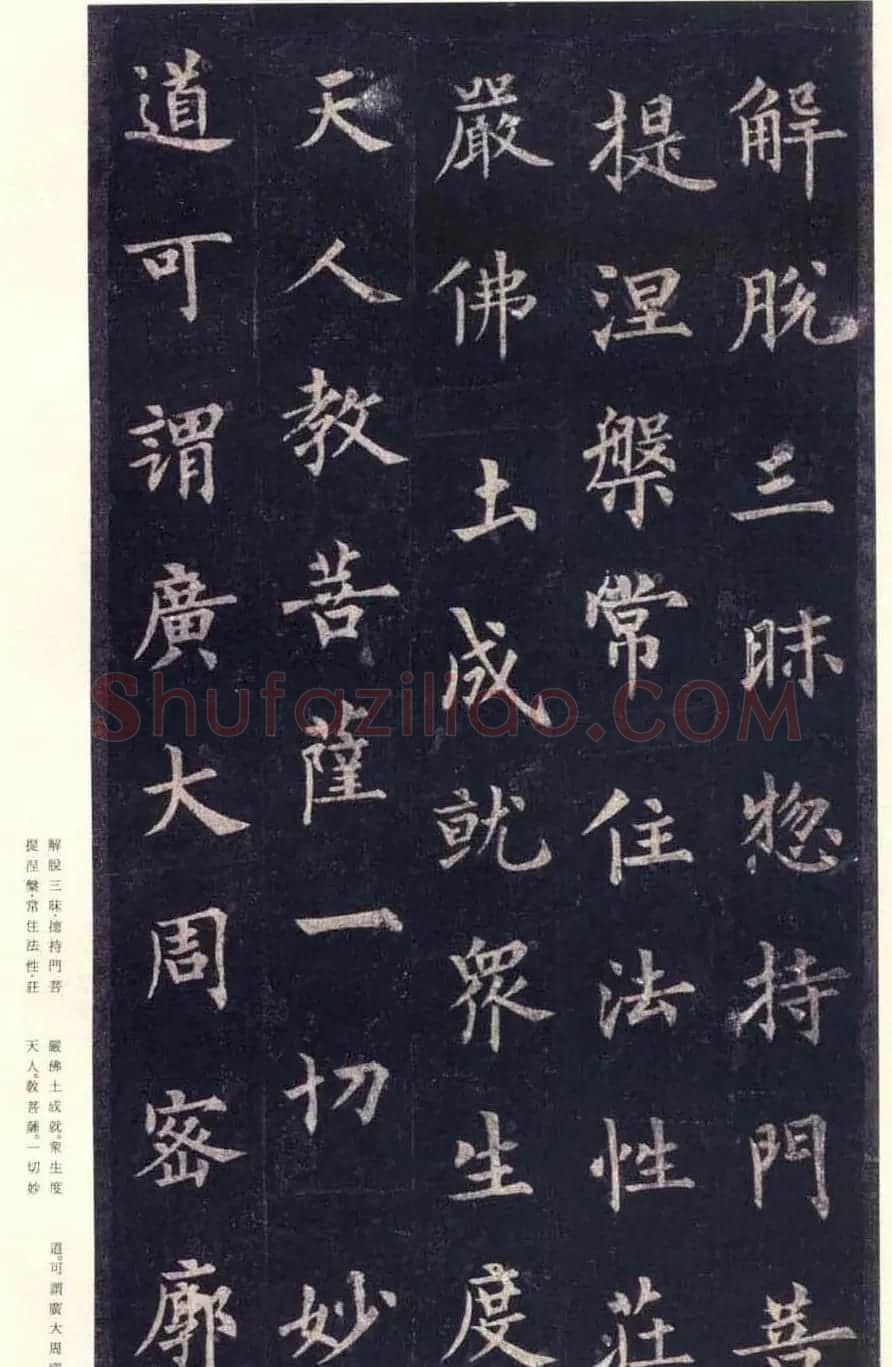 解脫三昧惚持門菩
提涅槃常住法性莊
嚴佛土成就眾生度
天人教菩薩一切妙
道可謂廣大周密廓
解脫三昧·揔持門菩
提涅槃·常住法性·莊
嚴佛土成就。衆生度
天人。敎菩薩。一切妙
道。可謂廣大周密
Shufaziliao.COM